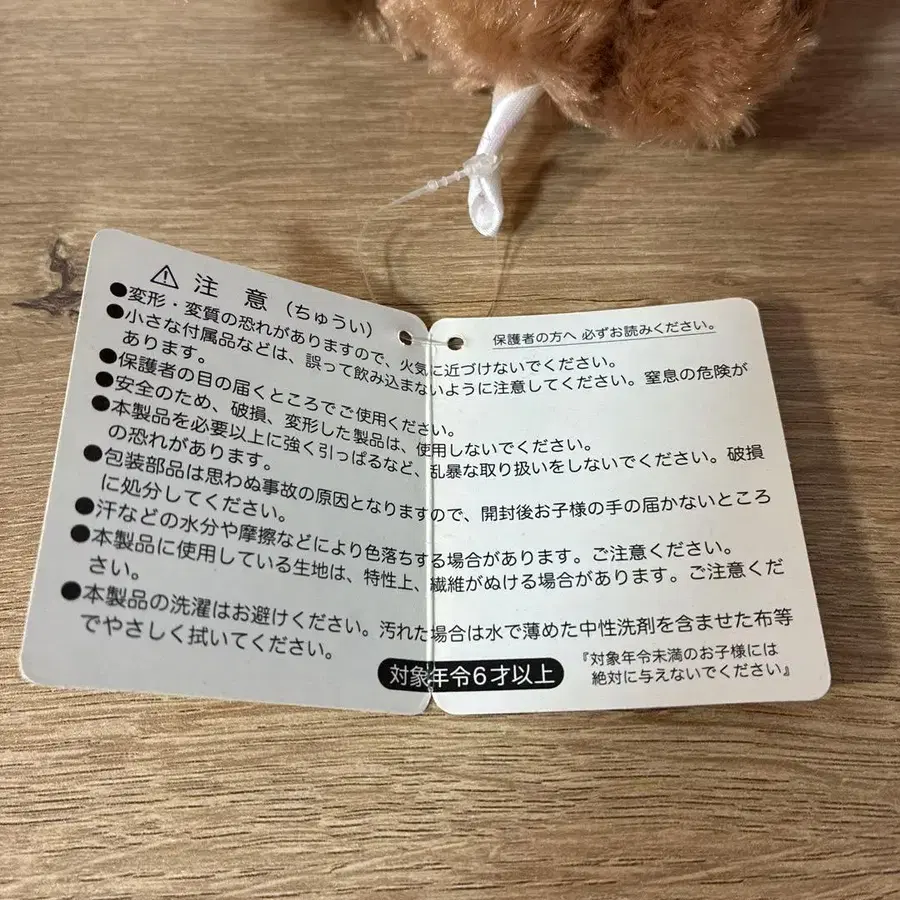 ⚠ 注 意 (ちゅうい)
保護者の方へ 必ずお読みください。
●変形・変質の恐れがありますので、火気に近づけないでください。
●小さな付属品などは、誤って飲み込まないように注意してください。窒息の危険が
あります。
●保護者の目の届くところでご使用ください。
●安全のため、破損、変形した製品は、使用しないでください。
●本製品を必要以上に強く引っぱるなど、乱暴な取り扱いをしないでください。破損
の恐れがあります。
●包装部品は思わぬ事故の原因となりますので、開封後お子様の手の届かないところ
に処分してください。
●汗などの水分や摩擦などにより色落ちする場合があります。ご注意ください。
●本製品に使用している生地は、特性上、繊維がぬける場合があります。ご注意くだ
さい。
●本製品の洗濯はお避けください。汚れた場合は水で薄めた中性洗剤を含ませた布等
でやさしく拭いてください。
対象年令6才以上
『対象年令未満のお子様には
絶対に与えないでください』